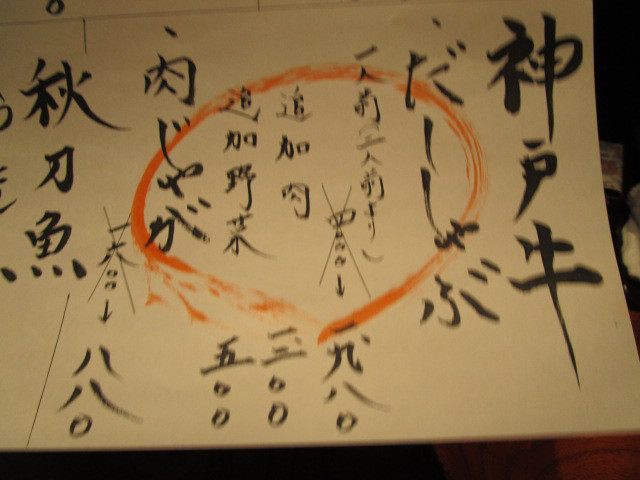 神戸牛
・だししゃぶ
一人前(二人前より) 四〇〇〇→一九八〇
追加肉 一三〇〇
追加野菜 五〇〇
・肉じゃが 八八〇
秋刀魚